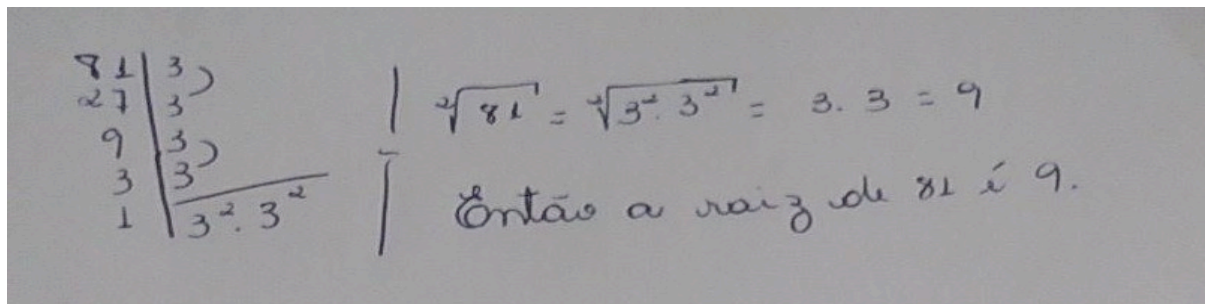 81 | 3
27 | 3
9 | 3
3 | 3
1 | 3². 3²
²√81 = ²√3². 3² = 3. 3 = 9
Então a raiz de 81 é 9.